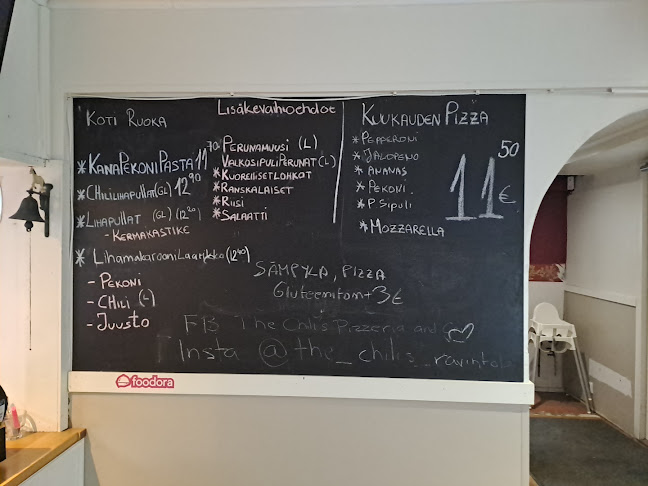 Koti Ruoka
* KanaPekoniPasta 11 70
* Chililihapullat (GL) 12 90
* Lihapullat (GL) (12 20)
- Kermakastike
* Lihamakaroonilaatikko (12 90)
- Pekoni
- Chili (L)
- Juusto
Lisäkevaihtoehdot
Perunamuusi (L)
Valkosipuliperunat (L)
* Kuorellisetlohkot
* Ranskalaiset
* Riisi
* Salaatti
Kuukauden Pizza
* Pepperoni
* Jalopeno
* Ananas
* Pekoni
* P Sipuli
* Mozzarella
11 50 €
Sämpylä, Pizza
Gluteeniton + 3€
FB The Chilis Pizzeria and
Insta @the_chilis_ravintola
foodora